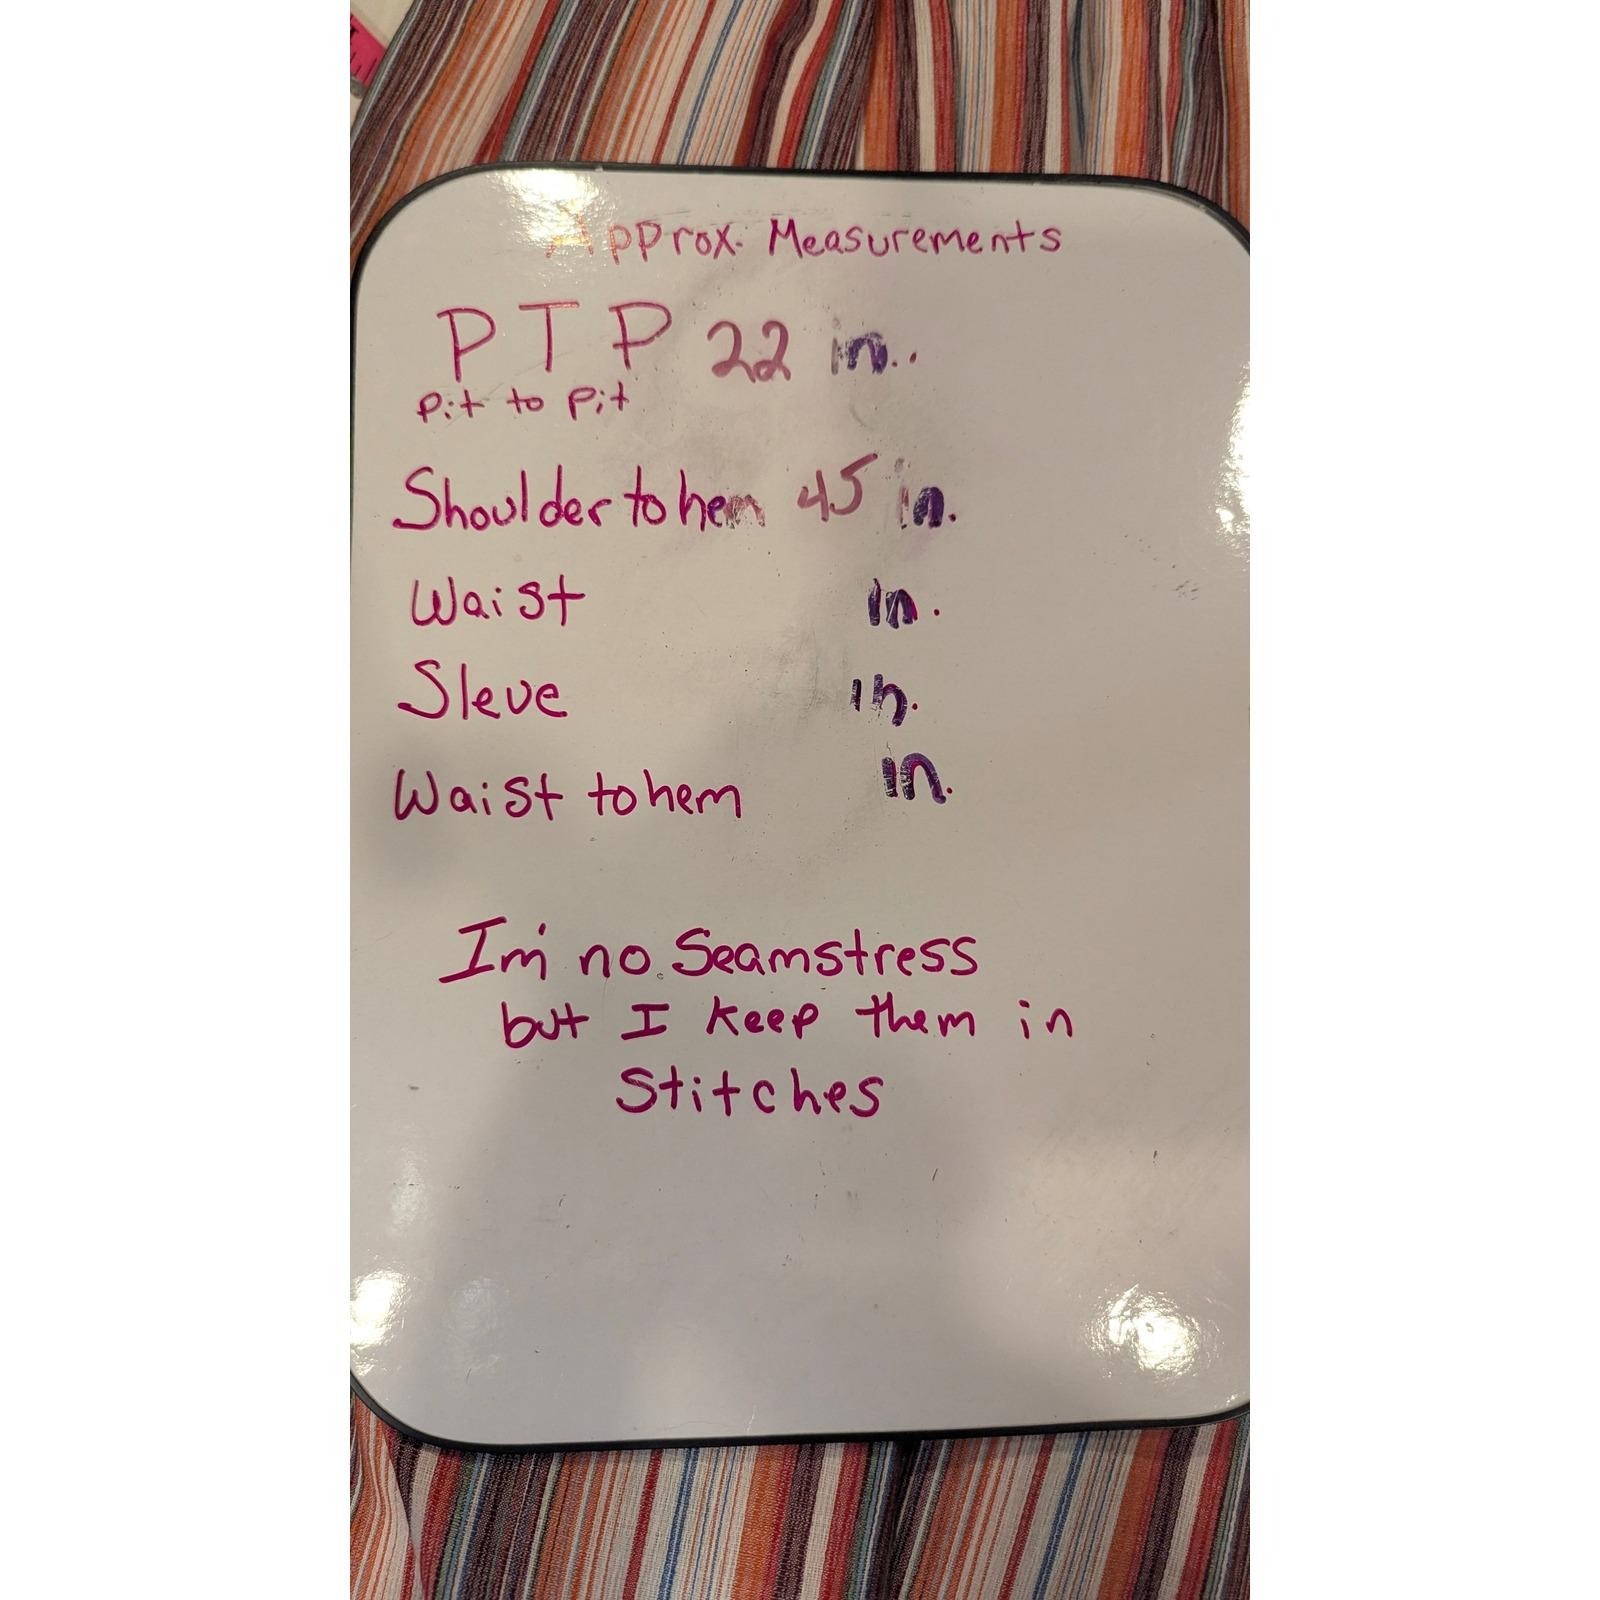 Approx. Measurements
PTP 22 in..
pit to pit
Shoulder to hem 45 in.
Waist in.
Sleve in.
Waist to hem in.
I'm no Seamstress
but I keep them in
Stitches